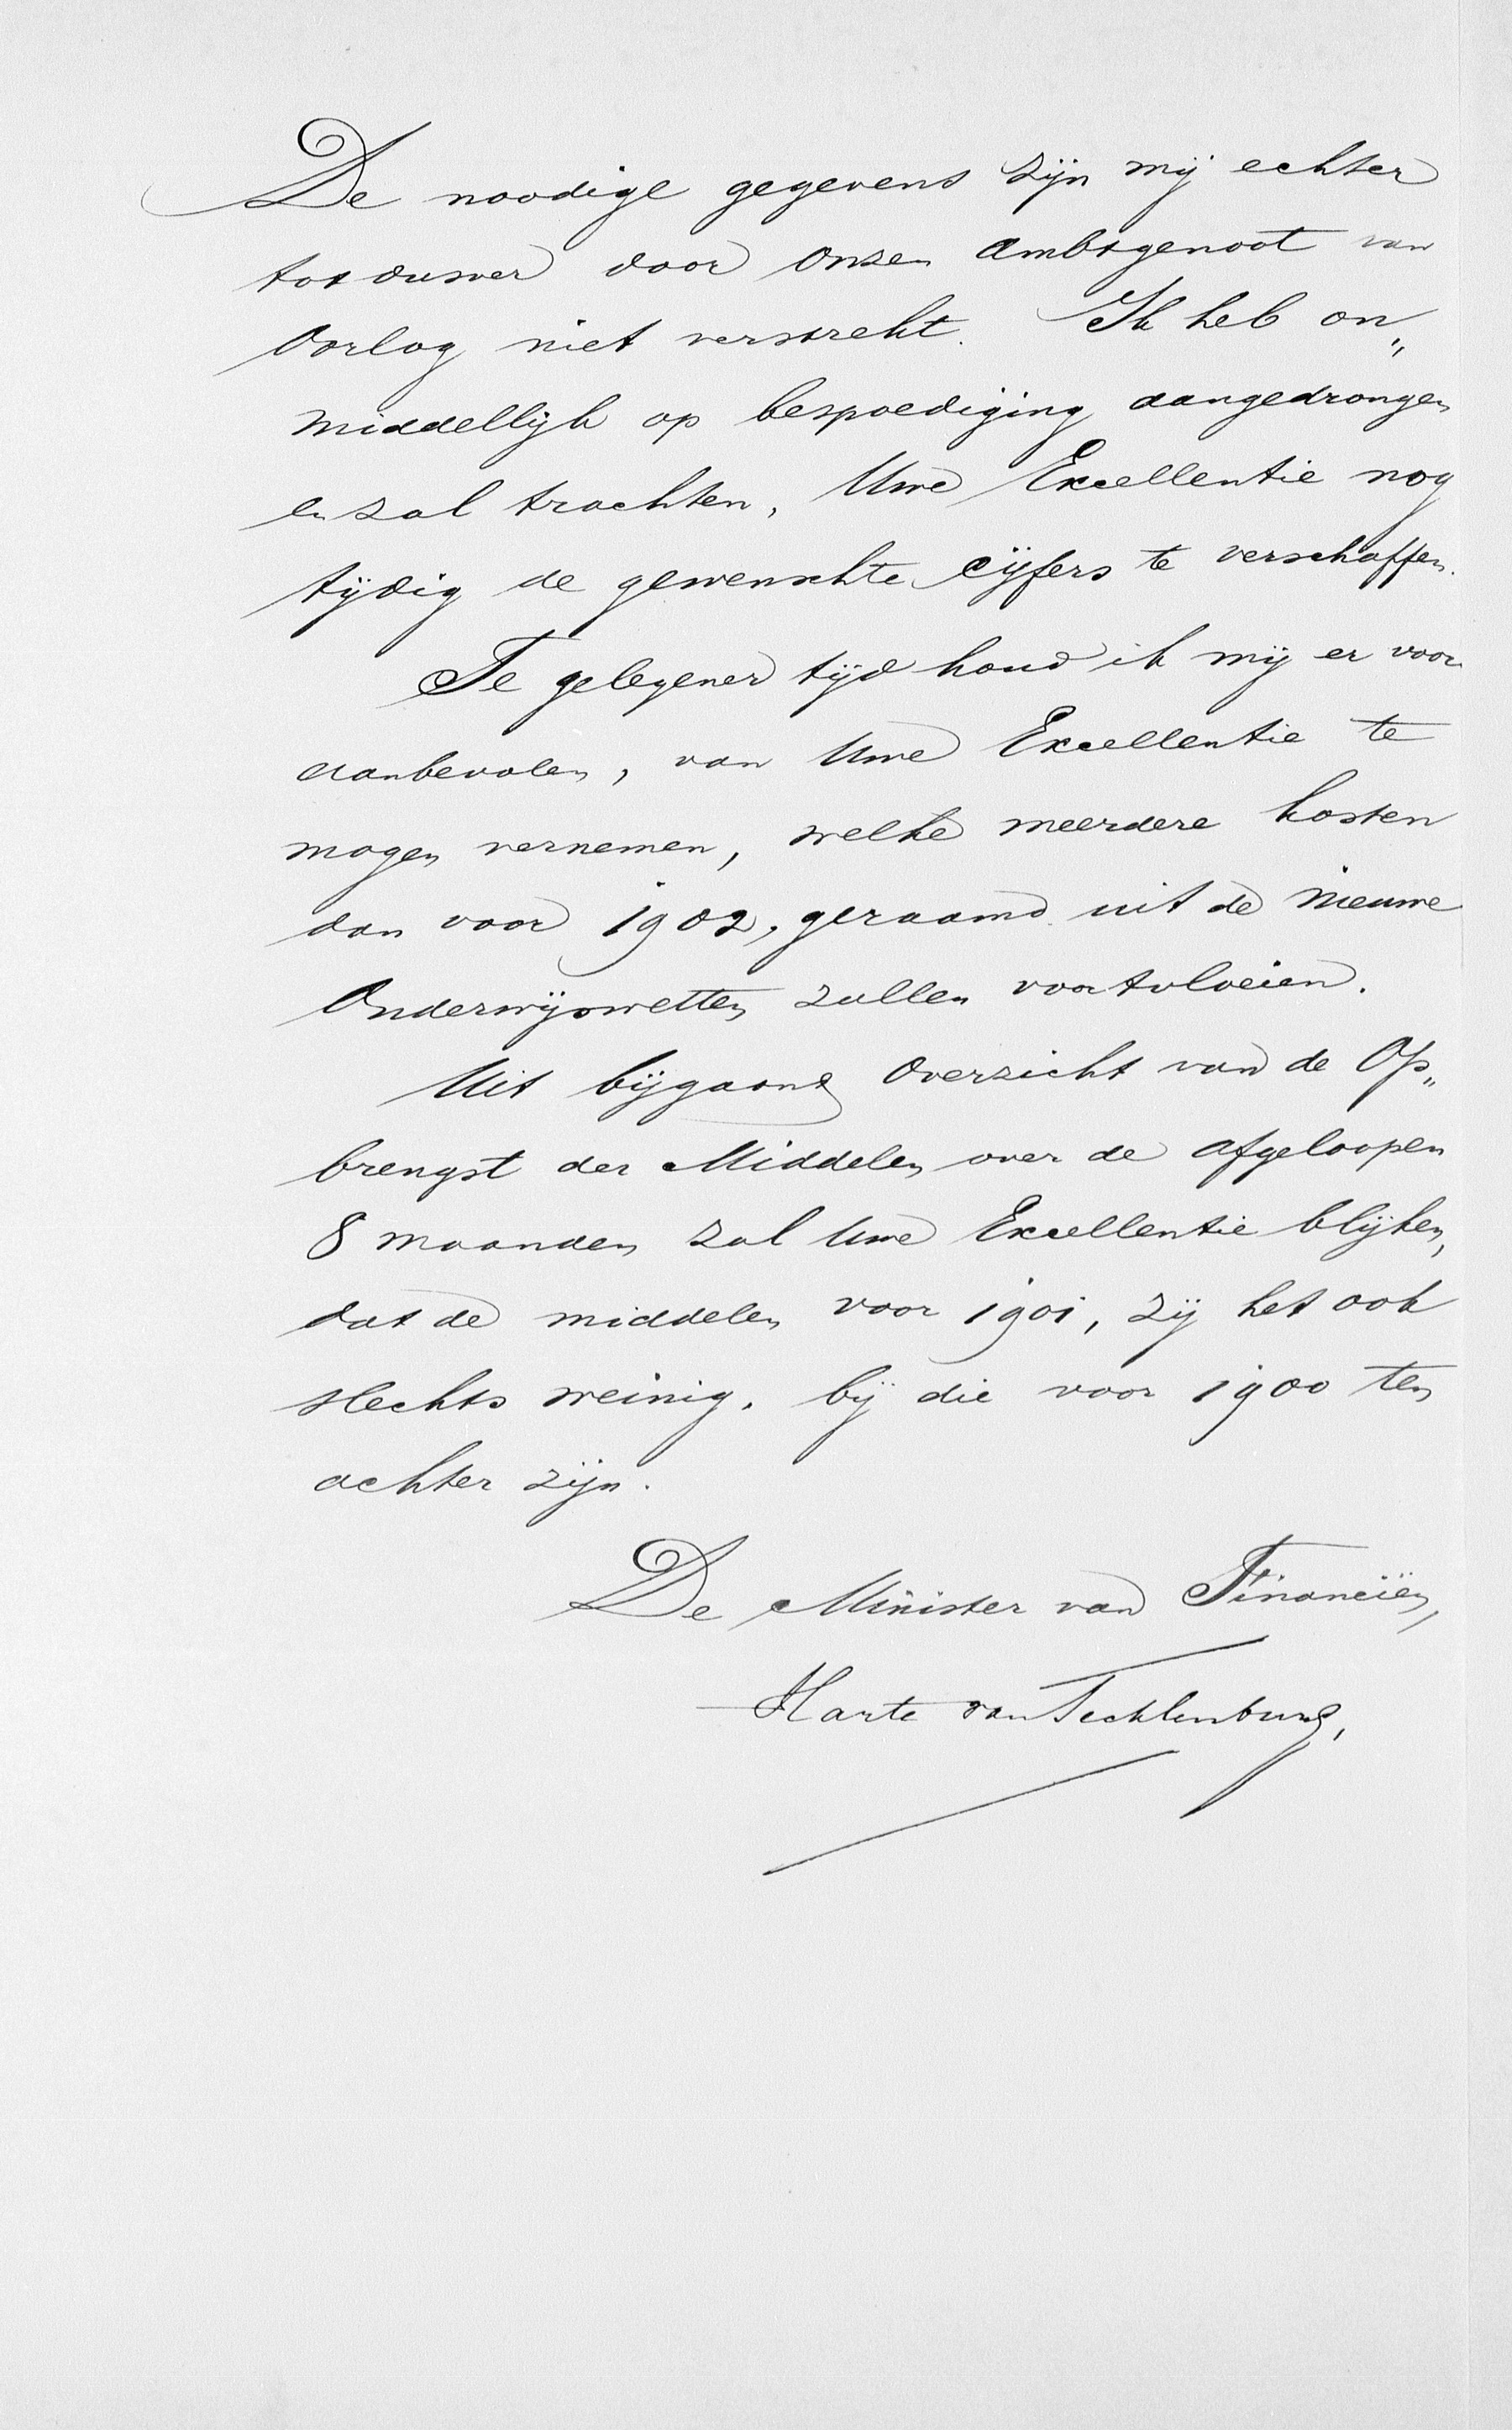 De noodige gegevens zijn mij echter
tot dusver door onzen ambtgenoot van
Oorlog niet verstrekt. Ik heb on„
middellijk op bespoediging aangedrongen
en zal trachten, Uwe Excellentie nog
tijdig de gewenschte cijfers te verschaffen.
Te gelegener tijd houd ik mij er voor
aanbevolen, van Uwe Excellentie te
mogen vernemen, welke meerdere kosten
dan voor 1902, geraamd uit de nieuwe
Onderwijswetten zullen voortvloeien.
Uit bijgaand Overzicht van de Op„
brengst der Middelen over de afgeloopen
8 maanden zal Uwe Excellentie blijken,
dat de middelen voor 1901, zij het ook
slechts weinig, bij die voor 1900 ten
achter zijn.
De Minister van Financiën,
Harte van Tecklenburg,